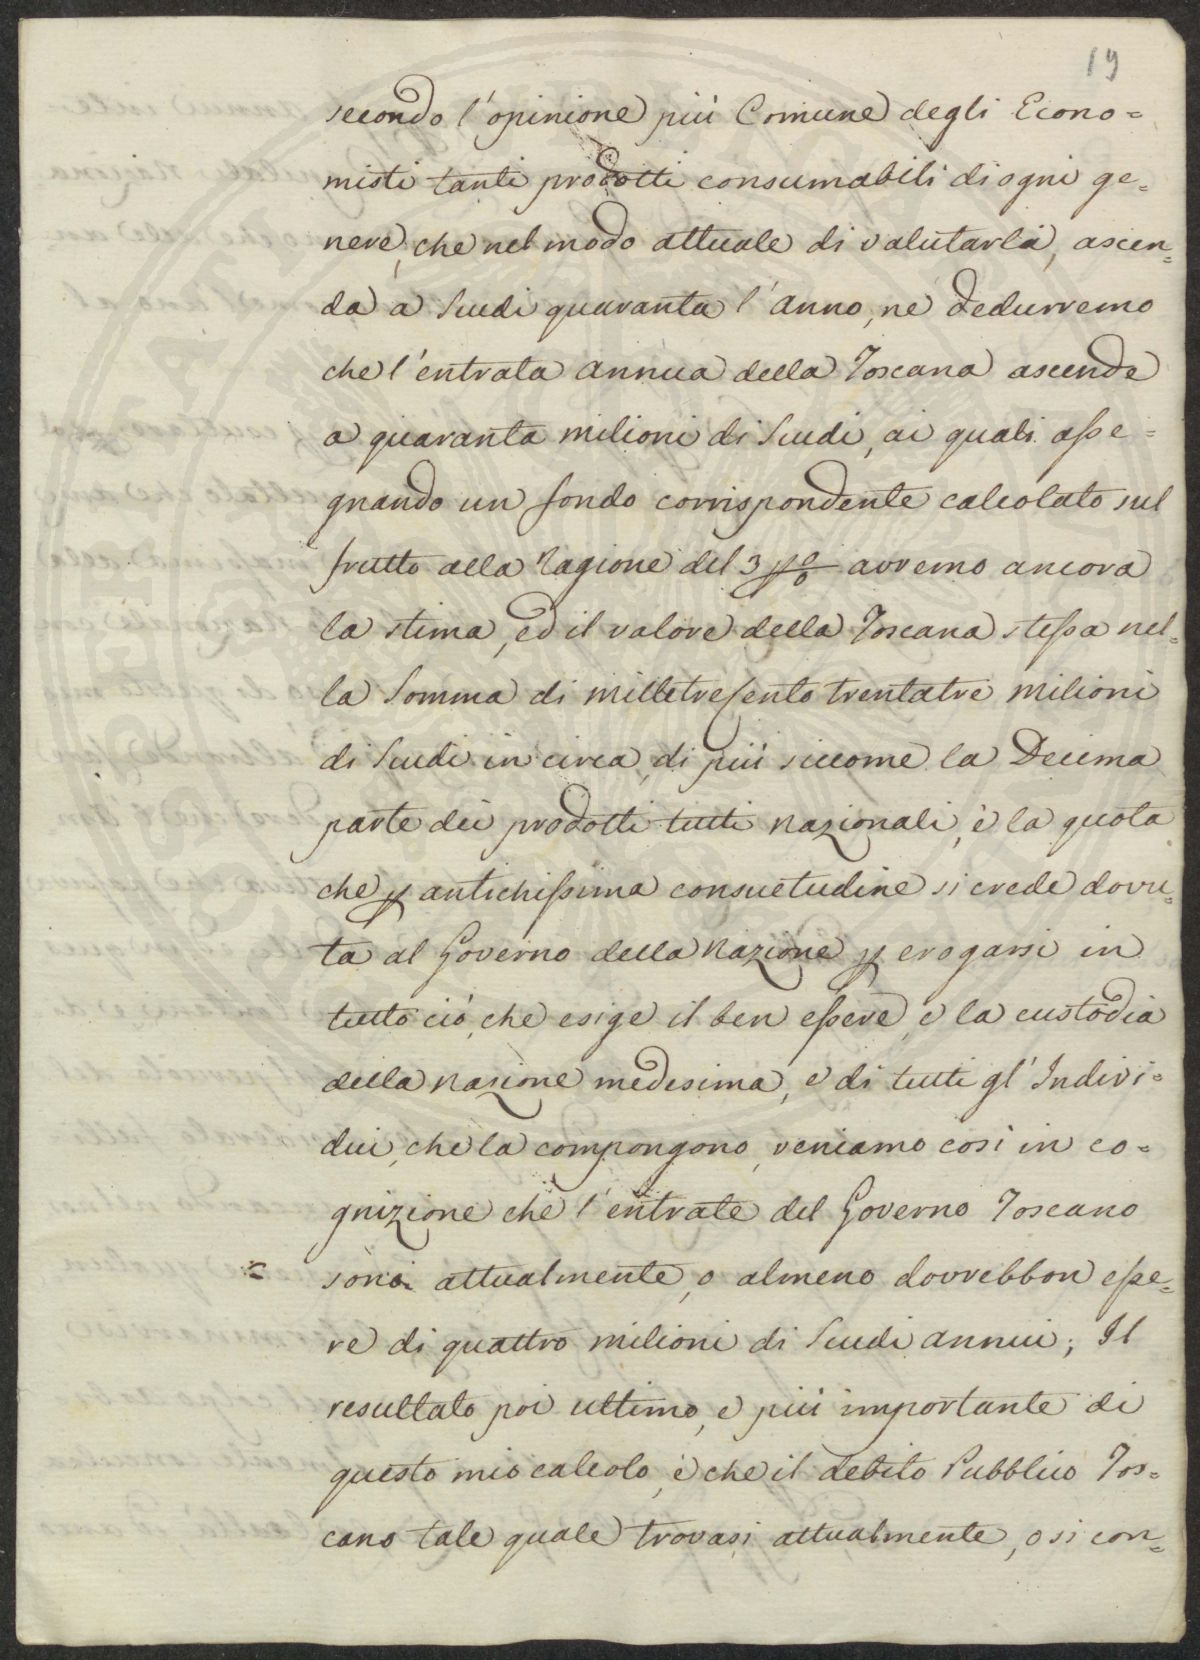 19
secondo l'opinione più Comune degli Econo=
misti tanti prodotti consumabili di ogni ge=
nere, che nel modo attuale di valutarli, ascen=
da a Scudi quaranta l'Anno, ne dedurremo
che l'entrata annua della Toscana ascende
a quaranta milioni di Scudi, ai quali asse=
gnando un fondo corrispondente calcolato sul
frutto alla ragione del 3 p% avremo ancora
la stima, ed il valore della Toscana stessa nel=
la Somma di milletrecento trentatre milioni
di Scudi in circa, di più siccome la Decima
parte dei prodotti tutti nazionali, è la quota
che p antichissima consuetudine si crede dovu=
ta al Governo della Nazione p erogarsi in
tutto ciò, che esige il ben essere, e la custodia
della Nazione medesima, e di tutti gl'Indivi=
dui, che la compongono, veniamo così in co=
gnizione che l'entrate del Governo Toscano
sono attualmente, o almeno dovrebbon esse=
re di quattro milioni di Scudi annui; Il
resultato poi ultimo, e più importante di
questo mio calcolo, è che il debito Pubblico Tos=
cano tale quale trovasi attualmente, o si con=